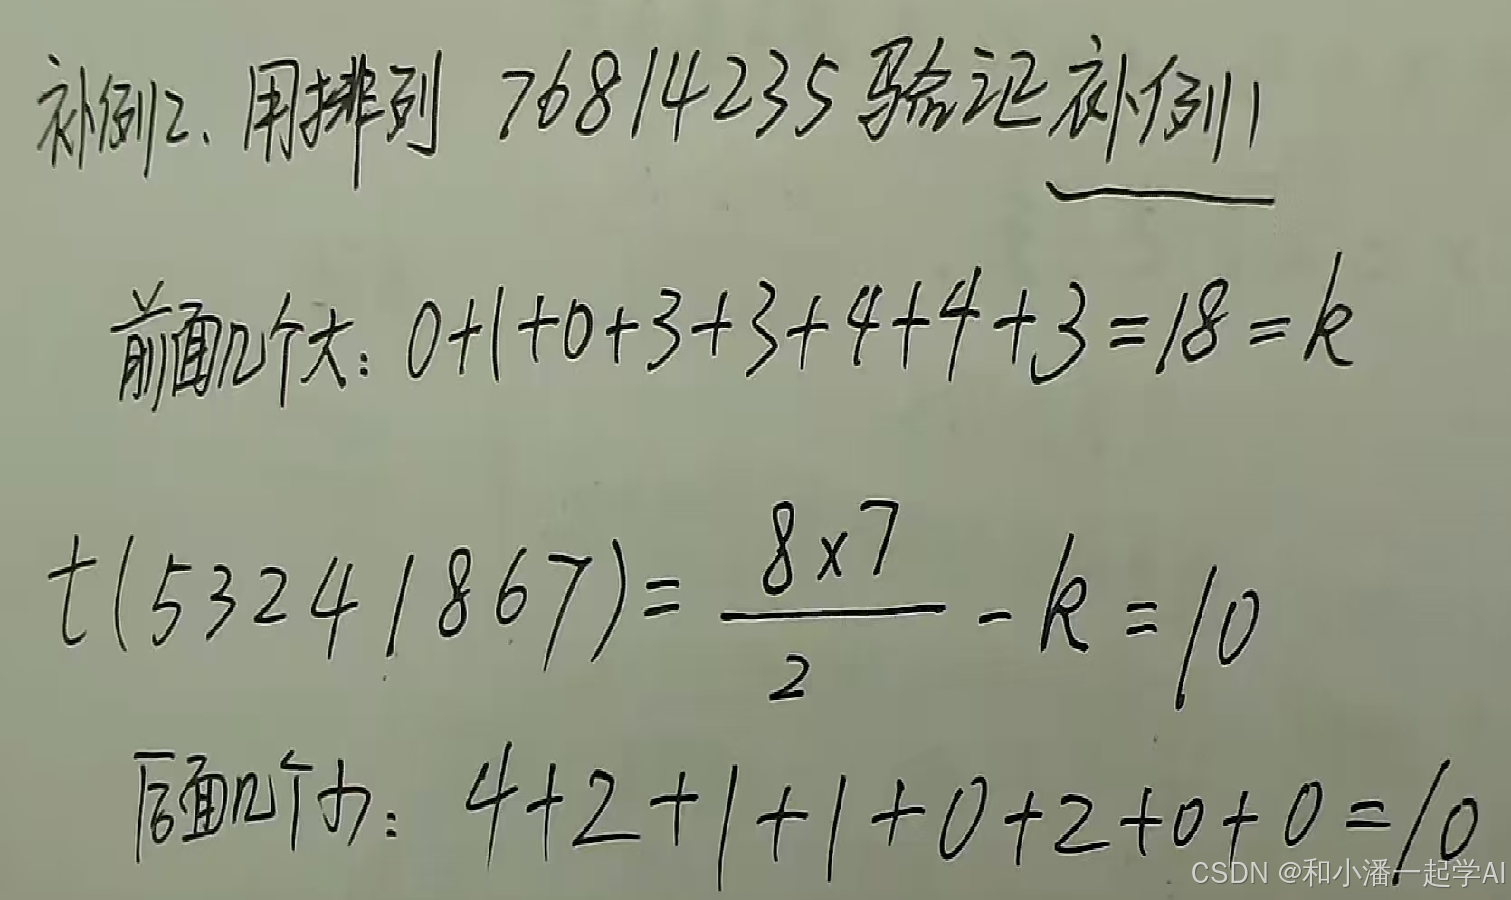 补例2、用排列 76814235 验证补例1
前面几个大: 0+1+0+3+3+4+4+3=18=k
t(53241867)= 8×7/2 -k=10
后面几个小: 4+2+1+1+0+2+0+0=10
CSDN @和小潘一起学AI